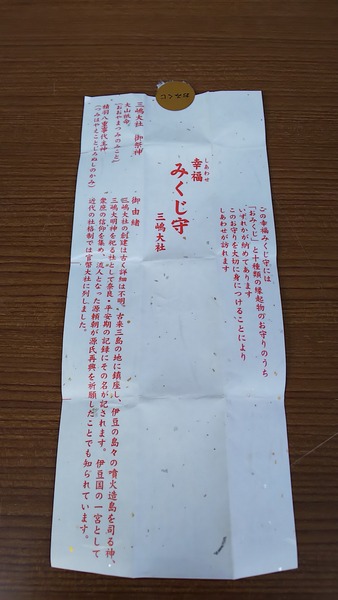 この幸福みくじ守には
「おみくじ」と十種類の縁起物のお守りのうち
いずれかが納めてあります
このお守りを大切に身につけることにより
しあわせが訪れます
しあわせ
幸福
みくじ守
三嶋大社
御由緒
三嶋大社の創建は古く詳細は不明、古来三島の地に鎮座し、伊豆の島々の噴火造島を司る神、
三嶋大明神を祀る社として奈良・平安期の記録にその名が記されます。伊豆国の一宮として
衆庶の信仰を集め、流人となった源頼朝が源氏再興を祈願したことでも知られています。
近代の社格制では官幣大社に列しました。
三嶋大社 御祭神
大山祇命
(おおやまつみのみこと)
積羽八重事代主神
(つみはやえことしろぬしのかみ)